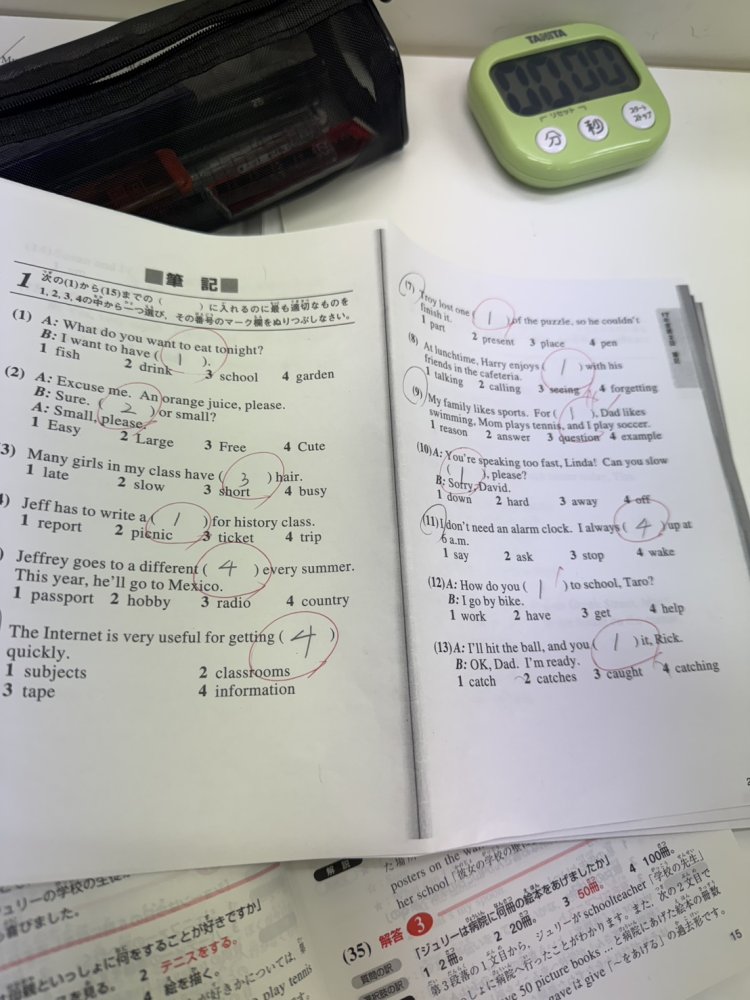 TANITA
00:00
リセット
分
秒
スタート
ストップ
筆記
1 次の(1)から(15)までの（　　）に入れるのに最も適切なものを
1, 2, 3, 4の中から一つ選び，その番号のマーク欄をぬりつぶしなさい。
(1) A: What do you want to eat tonight?
B: I want to have ( 1 ).
1 fish 2 drink 3 school 4 garden
(2) A: Excuse me. An orange juice, please.
B: Sure. ( 2 ) or small?
A: Small, please.
1 Easy 2 Large 3 Free 4 Cute
3) Many girls in my class have ( 3 ) hair.
1 late 2 slow 3 short 4 busy
) Jeff has to write a ( 1 ) for history class.
1 report 2 picnic 3 ticket 4 trip
) Jeffrey goes to a different ( 4 ) every summer.
This year, he'll go to Mexico.
1 passport 2 hobby 3 radio 4 country
The Internet is very useful for getting ( 4 )
quickly.
1 subjects 2 classrooms
3 tape 4 information
(7) Troy lost one ( 1 ) of the puzzle, so he couldn't
finish it.
1 part 2 present 3 place 4 pen
(8) At lunchtime, Harry enjoys ( 1 ) with his
friends in the cafeteria.
1 talking 2 calling 3 seeing 4 forgetting
(9) My family likes sports. For ( 1 ), Dad likes
swimming, Mom plays tennis, and I play soccer.
1 reason 2 answer 3 question 4 example
(10) A: You're speaking too fast, Linda! Can you slow
( 1 ), please?
B: Sorry, David.
1 down 2 hard 3 away 4 off
(11) I don't need an alarm clock. I always ( 4 ) up at
6 a.m.
1 say 2 ask 3 stop 4 wake
(12) A: How do you ( 1 ) to school, Taro?
B: I go by bike.
1 work 2 have 3 get 4 help
(13) A: I'll hit the ball, and you ( 1 ) it, Rick.
B: OK, Dad. I'm ready.
1 catch 2 catches 3 caught 4 catching
解説
posters on the wa
her school「彼女の学校の
(35) 解答 3
「ジュリーは病院に何冊の絵本をあげましたか」
1 2冊。 2 20冊。 3 50冊。 4 100冊。
質問の訳
選択肢の訳
第3段落の1文目から，ジュリーがschoolteacher「学校の先生」
っしょに病院へ行ったことがわかります。また，次の2文目で
ve 50 picture books ... と病院にあげた絵本の冊数
gaveはgive「～をあげる」の過去形です。
15
ュリーの学校の生徒
喜びました。
母親といっしょに何をすることが好きですか」
を見る。 2 テニスをする。
4 絵を描く。
play tennis